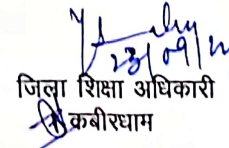 23/09/22
जिला शिक्षा अधिकारी
कबीरधाम